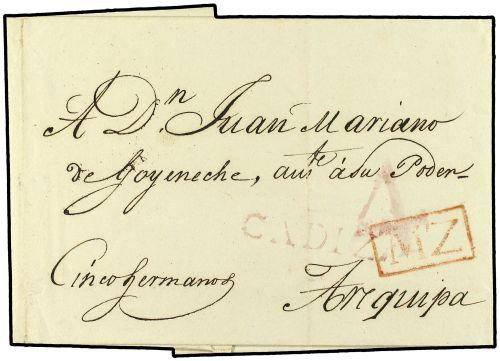 A Dn. Juan Mariano
de Goyeneche, auste. á su Poder
A
CADIZ
MZ
Cinco hermanos
Arequipa